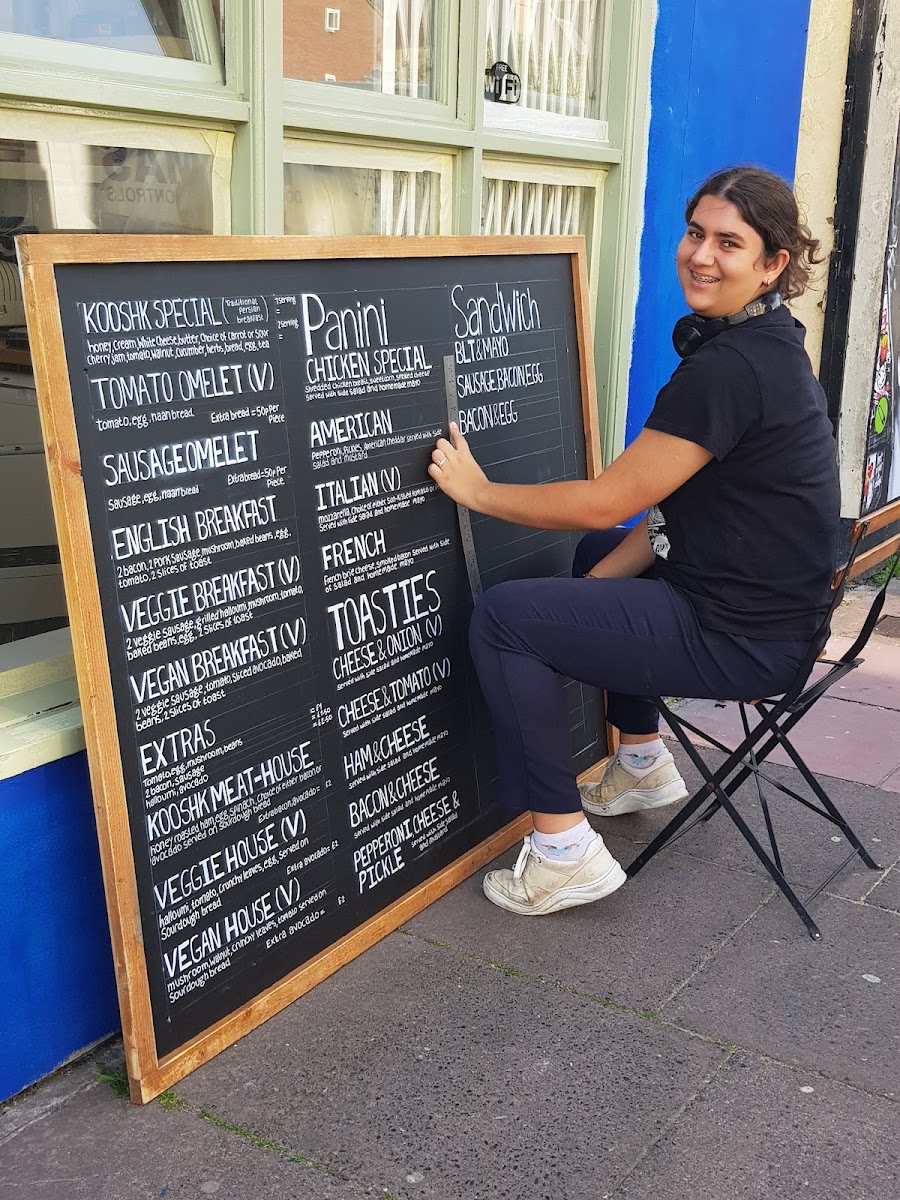 FREE
WiFi
CONTROLS
KOOSHK SPECIAL (Traditional Persian breakfast
honey, cream, White Cheese, butter, Choice of Carrot or Sour
cherry jam, tomato, walnut, cucumber, herbs, bread, egg, tea
TOMATO OMELET (V)
tomato, egg, naan bread.
Extra bread = 50p Per
Piece
SAUSAGE OMELET
Sausage, egg, naan bread
Extra bread = 50p Per
Piece
ENGLISH BREAKFAST
2 bacon, 2 Pork Sausage, mushroom, baked beans, egg,
tomato, 2 slices of toast
VEGGIE BREAKFAST (V)
2 veggie sausage, grilled halloumi, mushroom, tomato,
baked beans, egg, 2 slices of toast
VEGAN BREAKFAST (V)
2 veggie sausage, tomato, sliced avocado, baked
beans, 2 slices of toast
EXTRAS
Tomato, egg, mushroom, beans
2 bacon, sausage
halloumi, avocado
KOOSHK MEAT-HOUSE
honey roasted ham, egg, spinach, choice of either bacon or
avocado served on sourdough bread
Extra bacon, avocado = £2
VEGGIE HOUSE (V)
halloumi, tomato, crunchy leaves, egg, served on
Sourdough bread
Extra avocado = £2
VEGAN HOUSE (V)
mushroom, walnut, crunchy leaves, tomato served on
Sourdough bread
Extra avocado = £2
Panini
CHICKEN SPECIAL
Shredded chicken breast, sweetcorn, smoked cheese
served with side salad and homemade mayo
AMERICAN
Pepperoni, Pickles, American cheddar served with side
salad and mustard
ITALIAN (V)
mozzarella, Choice of either Sun-Kissed tomato or
Served with side salad and homemade mayo
FRENCH
French brie cheese, smoked bacon Served with side
of salad and homemade mayo
TOASTIES
CHEESE & ONION (V)
served with side salad and homemade mayo
CHEESE & TOMATO (V)
served with side salad and homemade mayo
HAM & CHEESE
served with side salad and homemade mayo
BACON & CHEESE
served with side salad and homemade mayo
PEPPERONI, CHEESE &
PICKLE
served with side salad
and mustard
Sandwich
BLT & MAYO
SAUSAGE, BACON, EGG
BACON & EGG